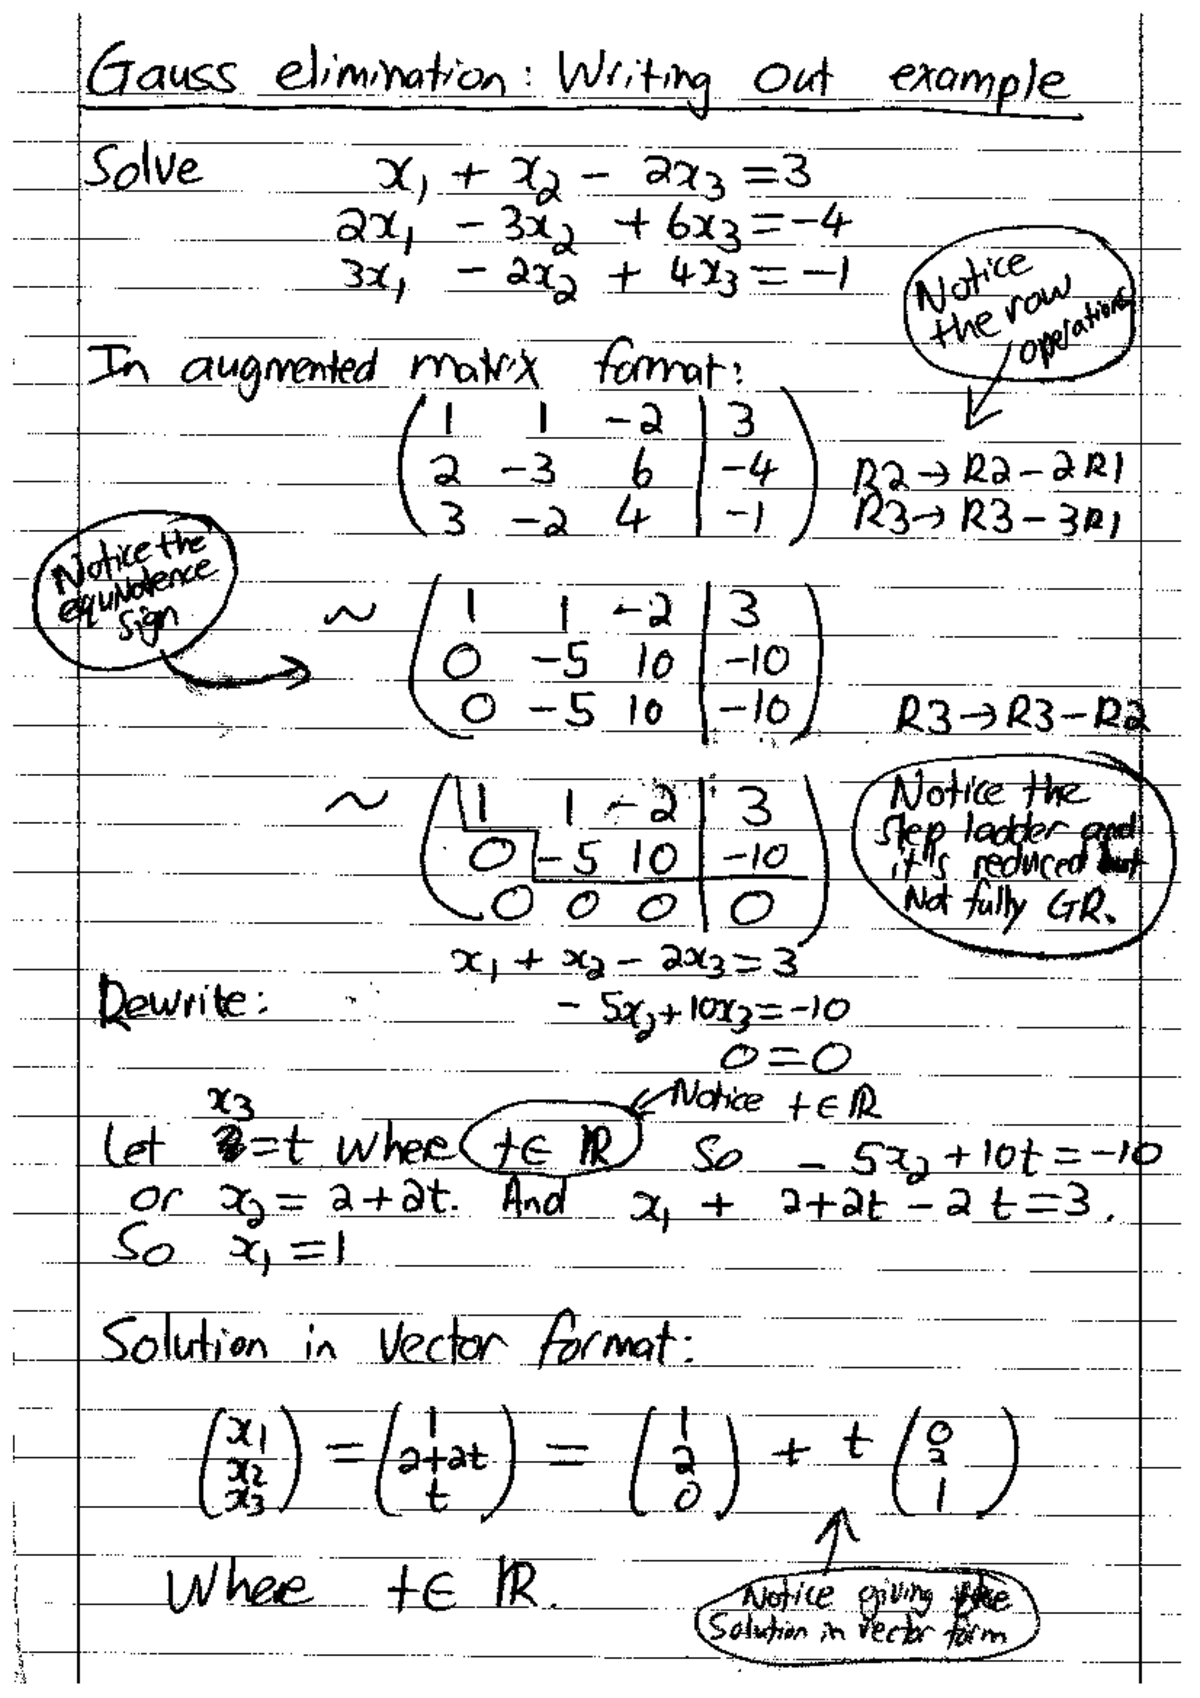 Gauss elimination: Writing Out example
Solve x₁ + x₂ - 2x₃ = 3
2x₁ - 3x₂ + 6x₃ = -4
3x₁ - 2x₂ + 4x₃ = -1
Notice
the row
operations
In augmented matrix format:
1 1 -2 | 3
2 -3 6 | -4 R2 → R2 - 2R1
3 -2 4 | -1 R3 → R3 - 3R1
Notice the
equivalence
sign
~ 1 1 -2 | 3
0 -5 10 | -10
0 -5 10 | -10 R3 → R3 - R2
~ 1 1 -2 | 3
0 -5 10 | -10
0 0 0 | 0
Notice the
step ladder and
it's reduced but
Not fully GR.
x₁ + x₂ - 2x₃ = 3
Rewrite: - 5x₂ + 10x₃ = -10
0 = 0
Notice t ∈ ℝ
x₃
Let = t where t ∈ ℝ So - 5x₂ + 10t = -10
or x₂ = 2 + 2t. And x₁ + 2 + 2t - 2t = 3.
So x₁ = 1
Solution in Vector format:
(x₁ x₂ x₃) = (1 2+2t t) = (1 2 0) + t (0 2 1)
Where t ∈ ℝ.
Notice giving the
Solution in vector form